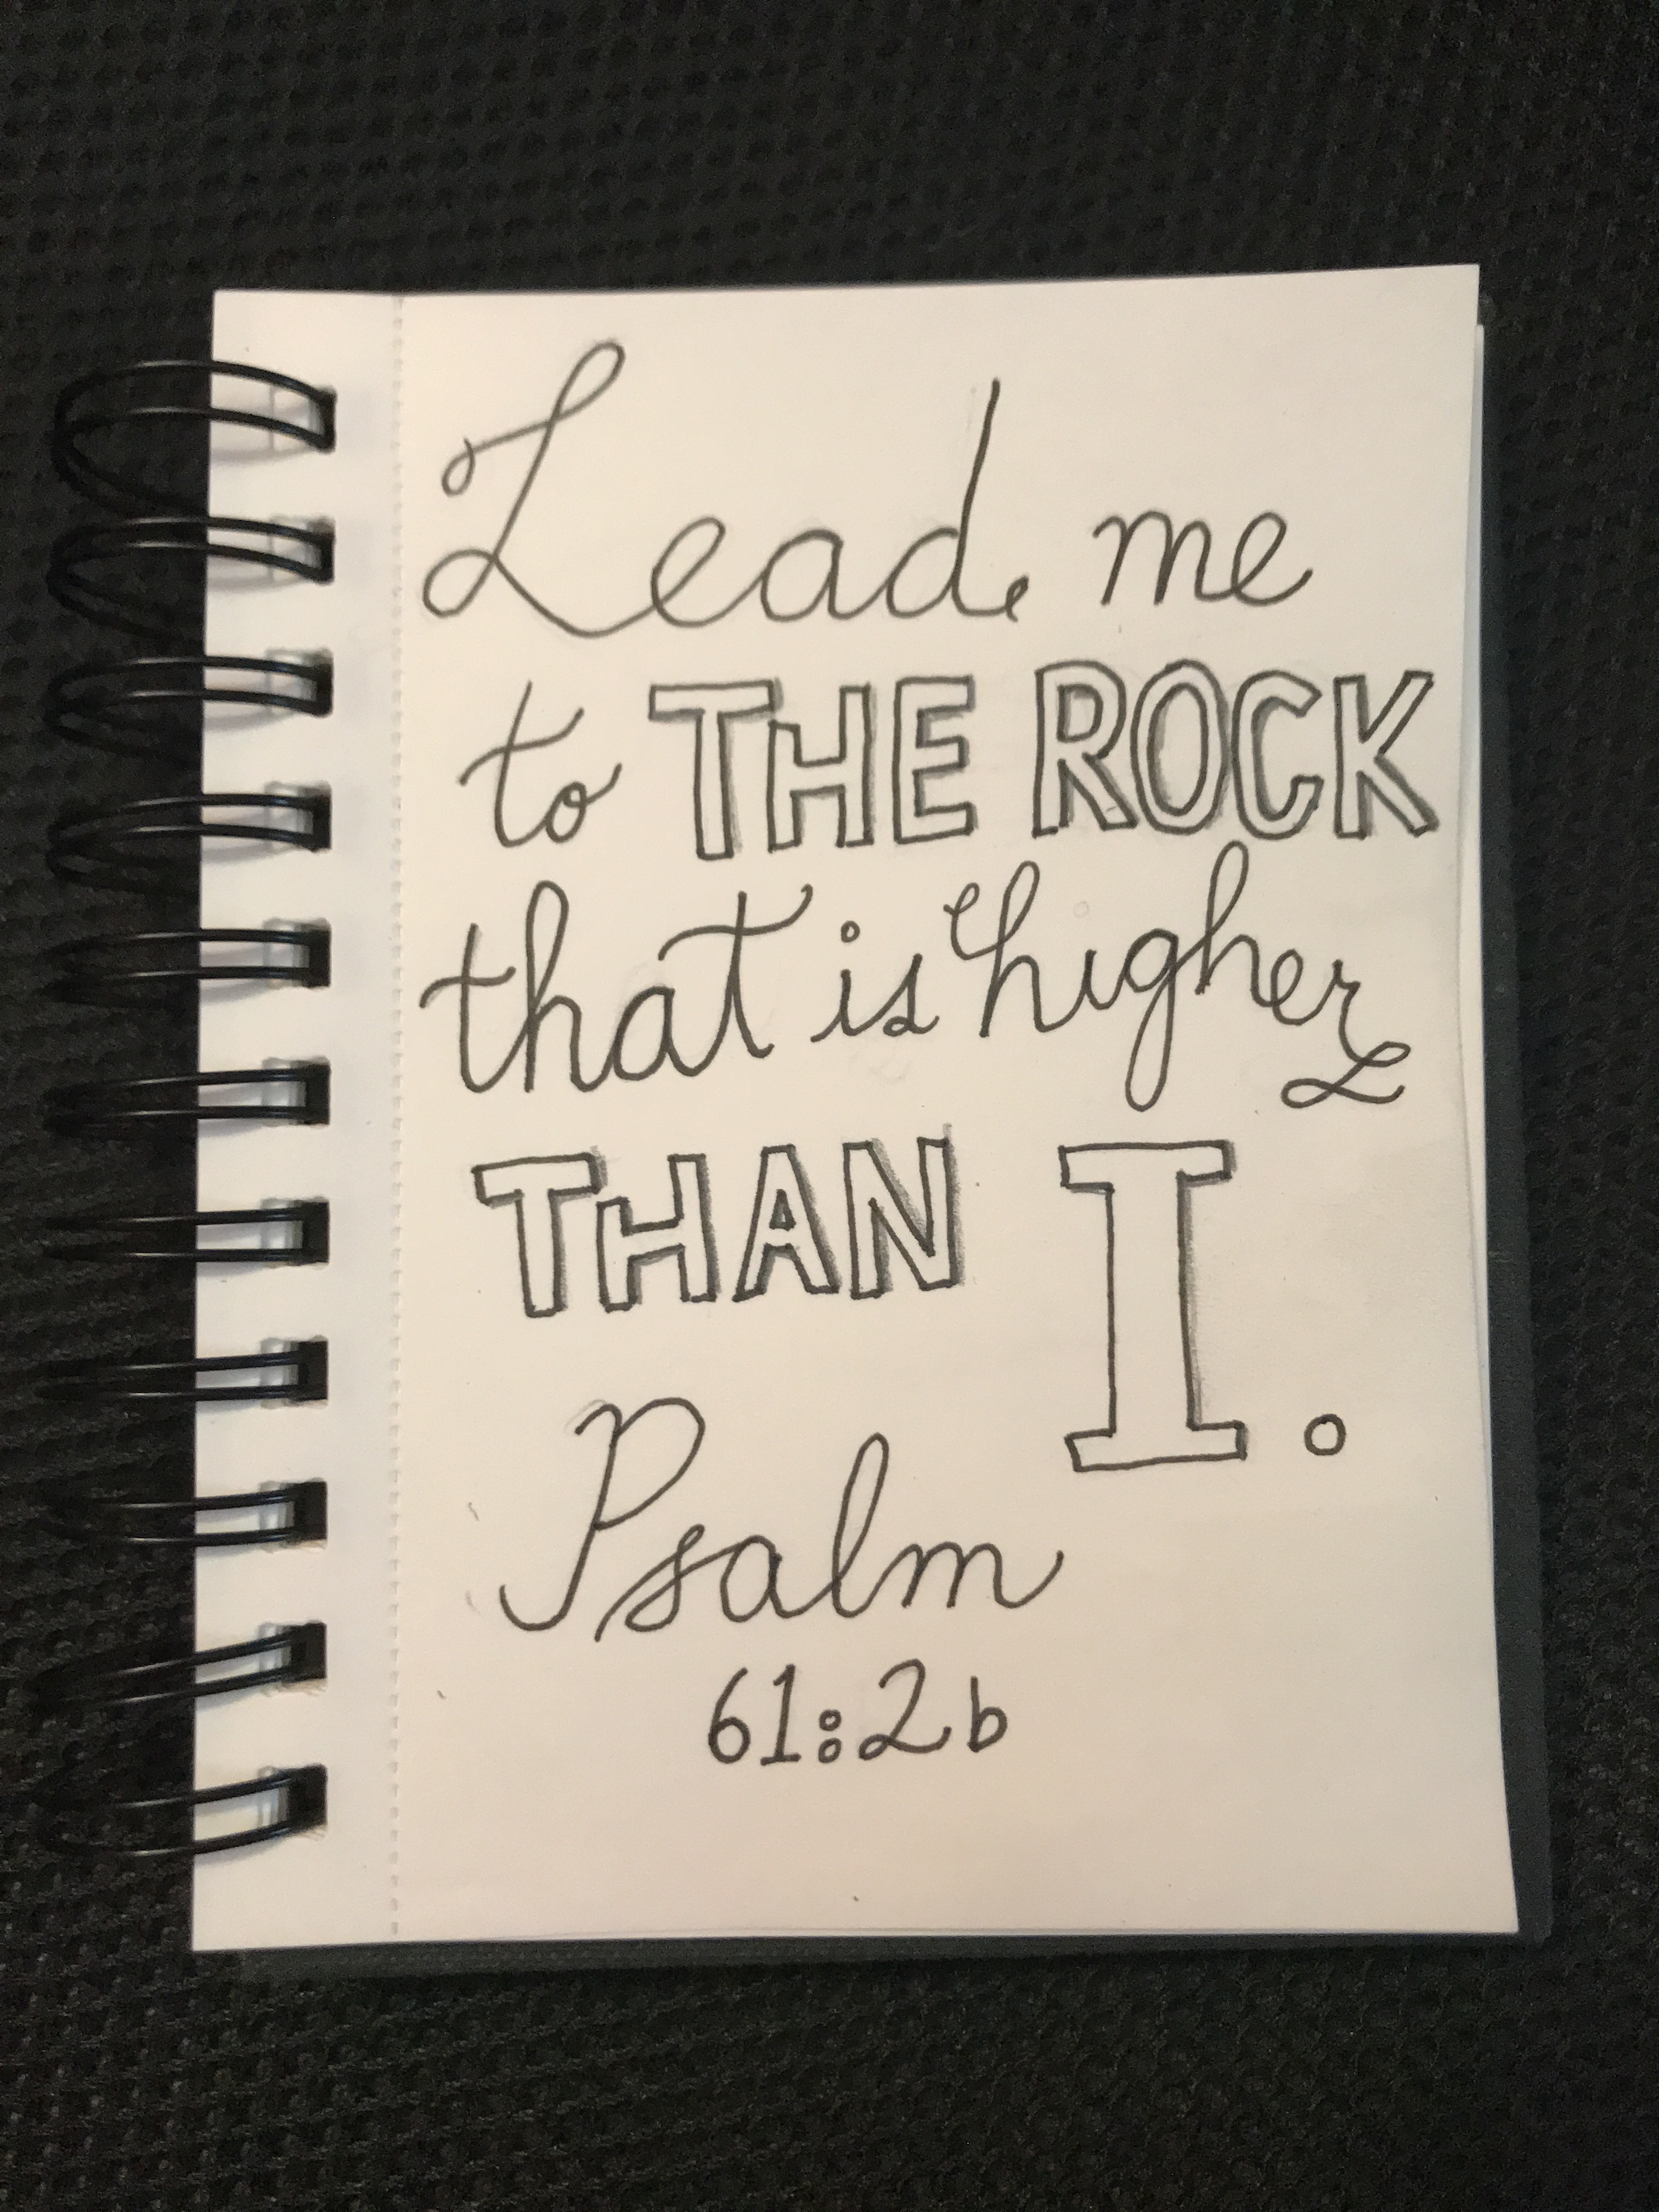 Lead me
to THE ROCK
that is higher
THAN I.
Psalm
61:2b